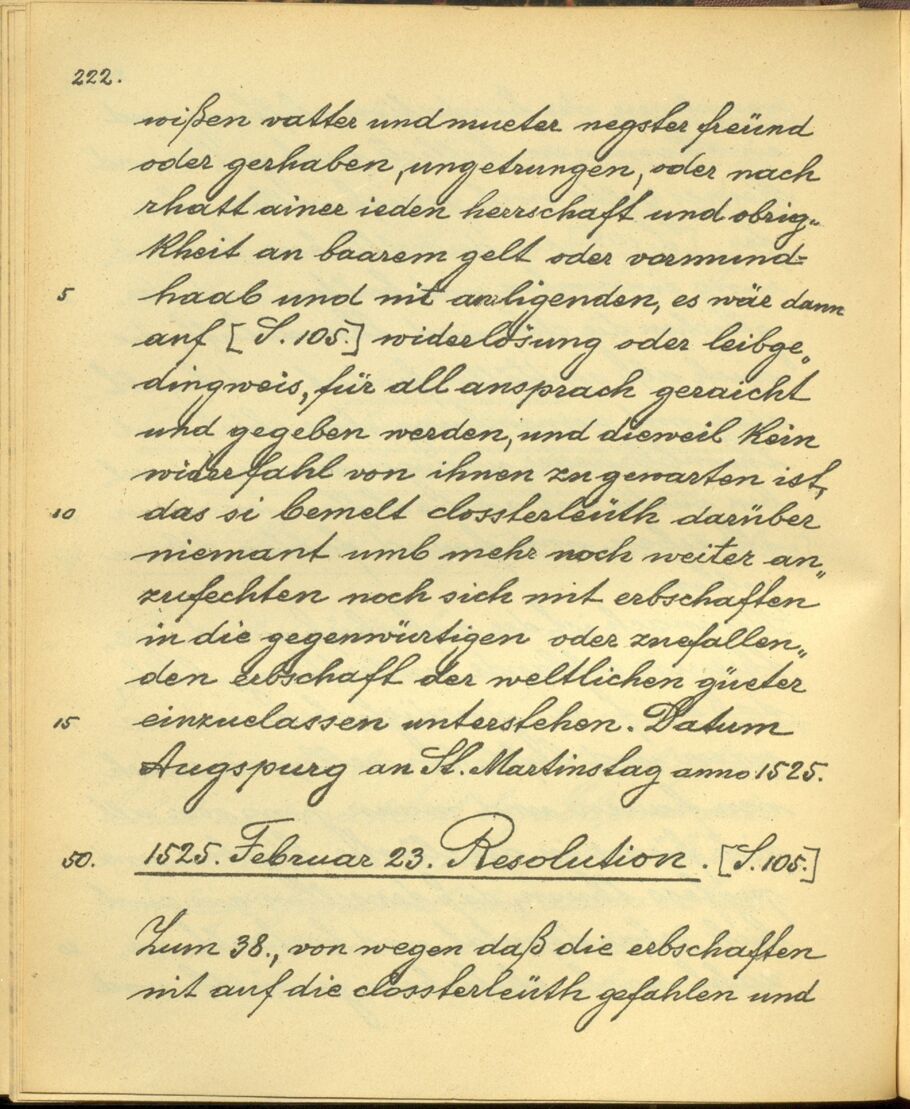 222.
wißen vatter und mueter negster freünd
oder gerhaben, ungetrungen, oder nach
rhatt ainer ieden herrschaft und obrig„
kheit an baarem gelt oder varmund=
5 haab und nit anligenden, es wär dann
auf [S. 105.] widerlösung oder leibge„
dingweis, für all ansprach geraicht
und gegeben werden, und dieweil kein
widerfahl von ihnen zu gewarten ist,
10 das si bemelt clossterleüth darüber
niemant umb mehr noch weiter an„
zufechten noch sich mit erbschaften
in die gegenwürtigen oder zuefallen„
den erbschaft der weltlichen güeter
15 einzuelassen unterstehen. Datum
Augspurg an St. Martinstag anno 1525.
50. 1525. Februar 23. Resolution. [S. 105.]
Zum 38., von wegen daß die erbschaften
nit auf die clossterleüth gefahlen und